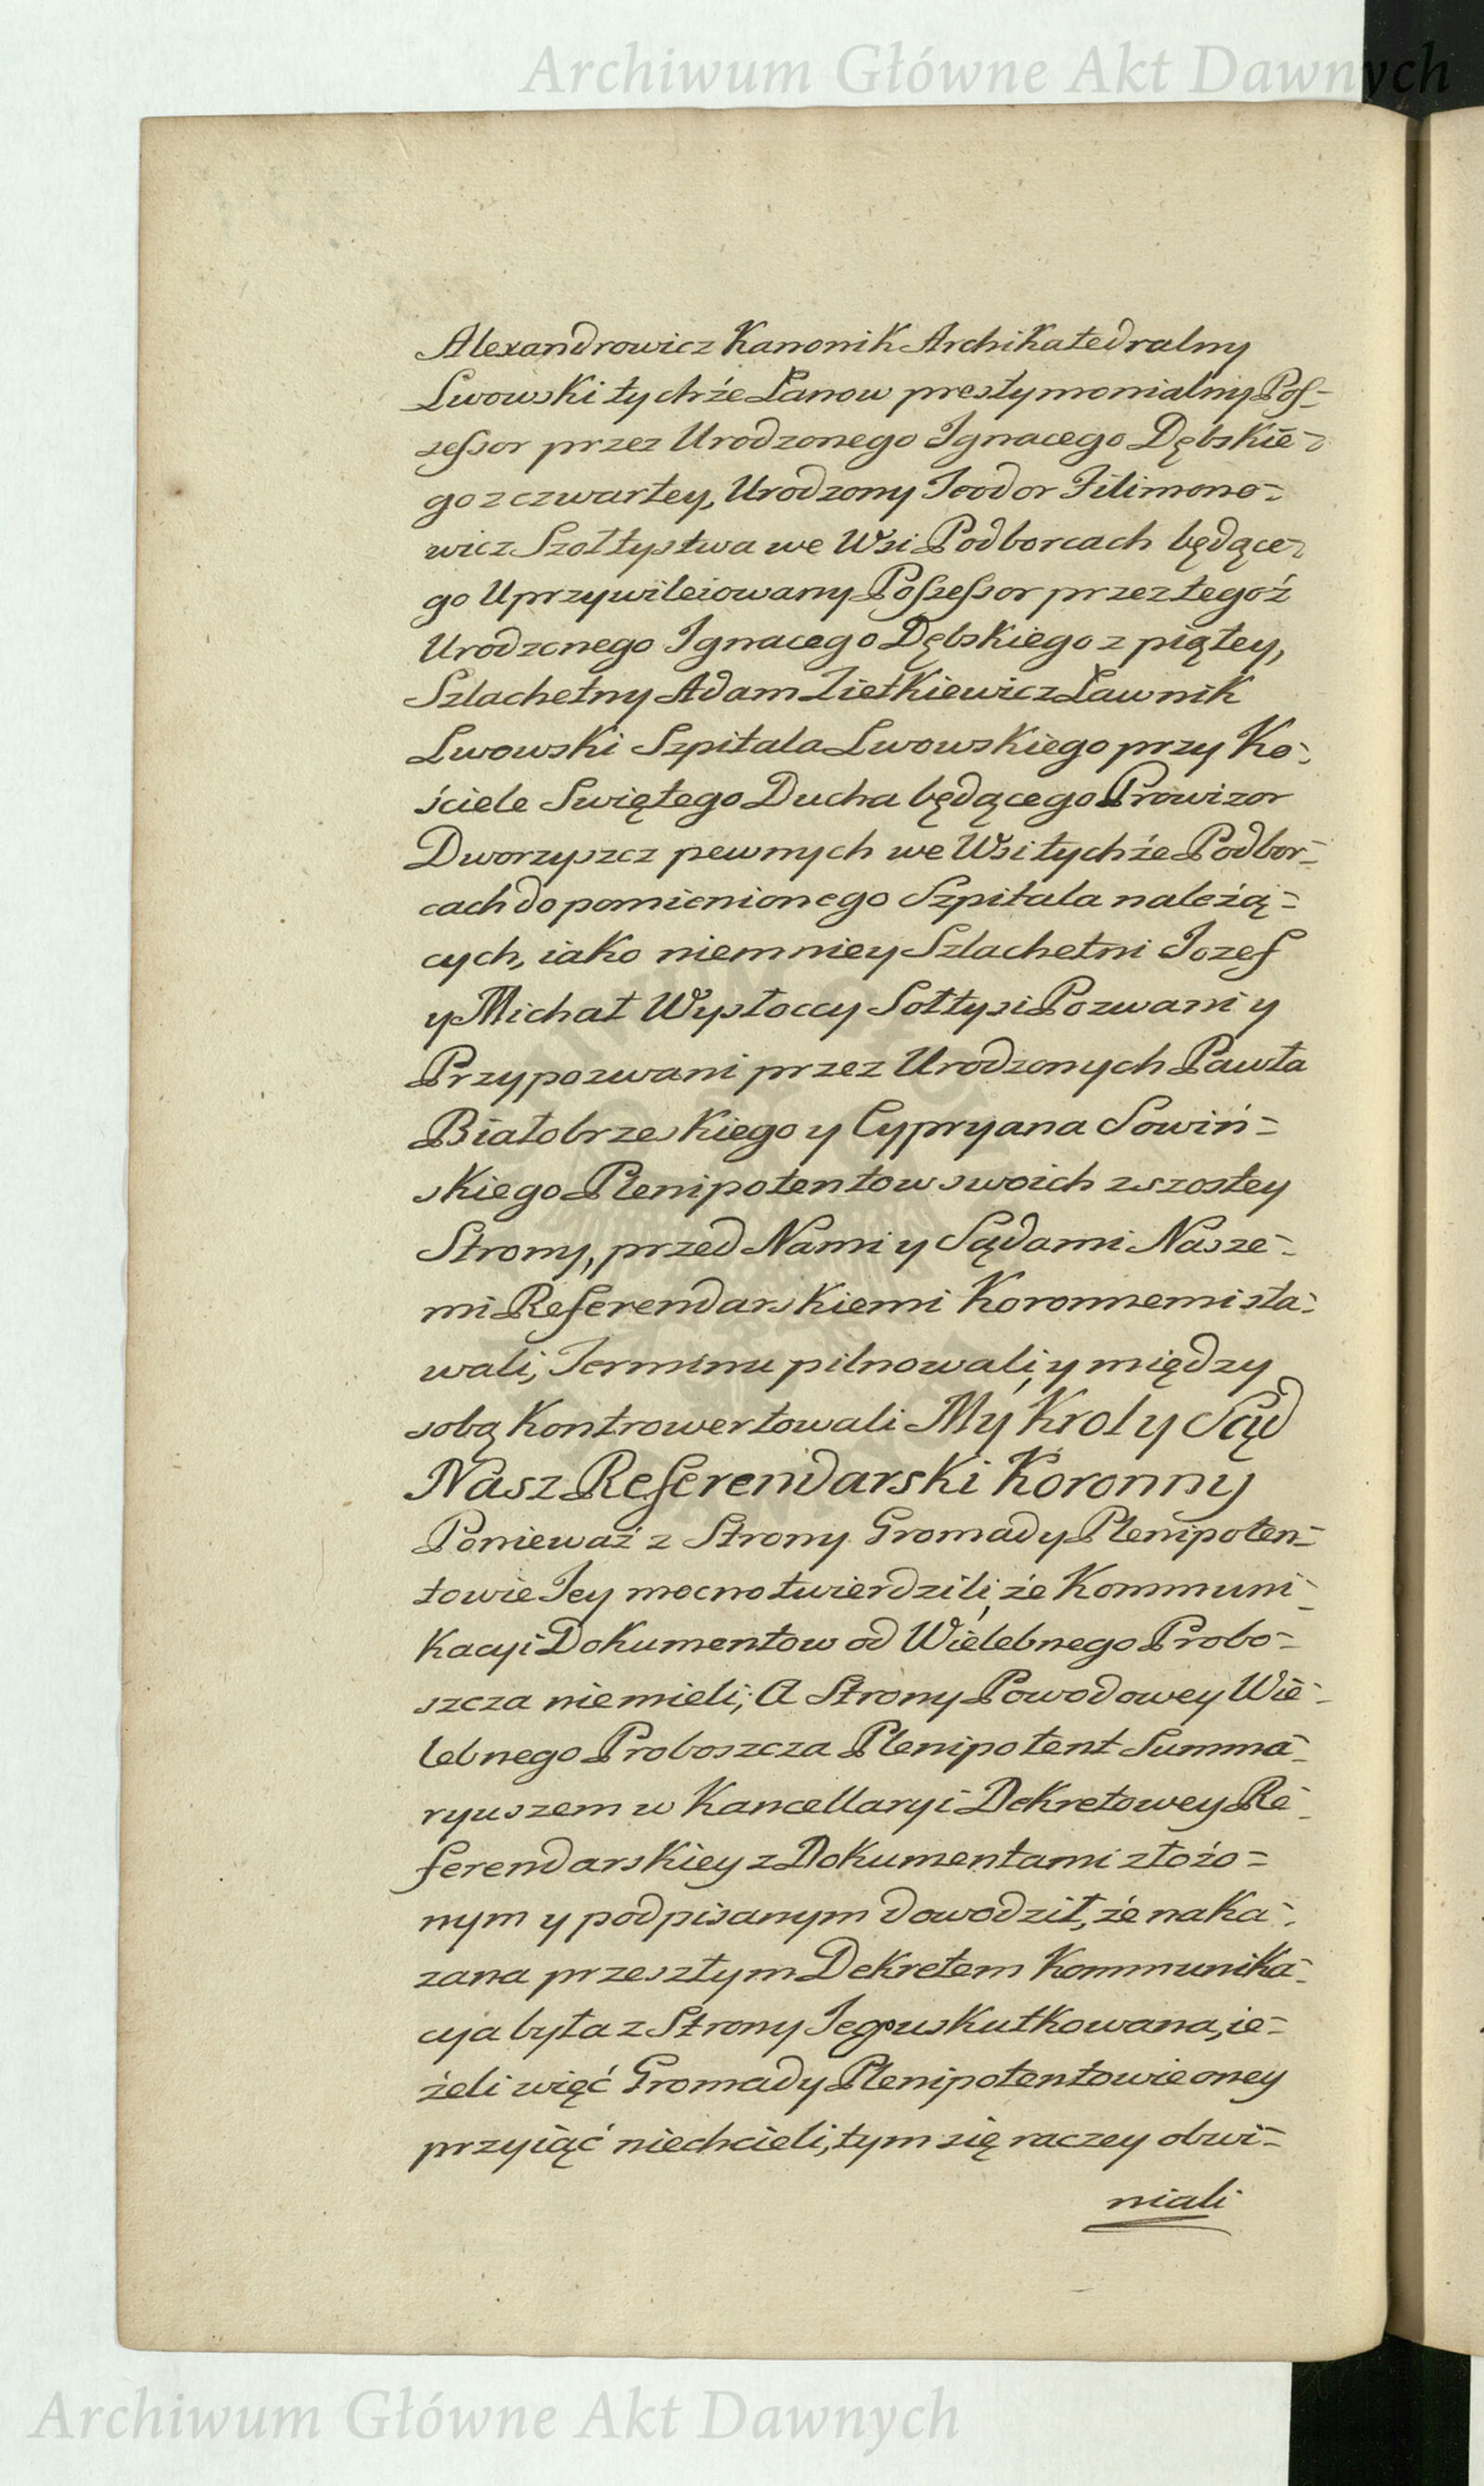 Archiwum Główne Akt Dawnych
Alexandrowicz Kanonik Archikatedralny
Lwowski tychże Łanow prestymonialny Pos-
sessor przez Urodzonego Ignacego Dębskie-
go z czwartey, Urodzony Teodor Filimono-
wicz Szołtystwa we Wsi Podborcach będące-
go Uprzywileiowany Possessor przez tegoż
Urodzonego Ignacego Dębskiego z piątey,
Szlachetny Adam Zietkiewicz Ławnik
Lwowski Szpitala Lwowskiego przy Ko-
ściele Swiętego Ducha będącego Prowizor
Dworzyszcz pewnych we Wsi tychże Podbor-
cach do pomienionego Szpitala należą-
cych, iako niemniey Szlachetni Jozef
y Michał Wysłoccy Sołtysi Pozwani y
Przypozwani przez Urodzonych Pawła
Białobrzeskiego y Cypryana Sowiń-
skiego Plenipotentow swoich z szostey
Strony, przed Nami y Sądami Nasze-
mi Referendarskiemi Koronnemi sta-
wali, Terminu pilnowali, y między
sobą kontrowertowali My Krol y Sąd
Nasz Referendarski Koronny
Ponieważ z Strony Gromady Plenipoten-
towie Jey mocno twierdzili, że Kommuni-
kacyi Dokumentow od Wielebnego Probo-
szcza niemieli; A Strony Powodowey Wie-
lebnego Proboszcza Plenipotent Summa-
ryuszem w Kancellaryi Dekretowey Re-
ferendarskiey z Dokumentami złożo-
nym y podpisanym dowodził, że naka-
zana przeszłym Dekretem Kommunika-
cya była z Strony Jego uskutkowana, ie-
żeli więć Gromady Plenipotentowie oney
przyiąć niechcieli, tym się raczey obwi-
niali
Archiwum Główne Akt Dawnych